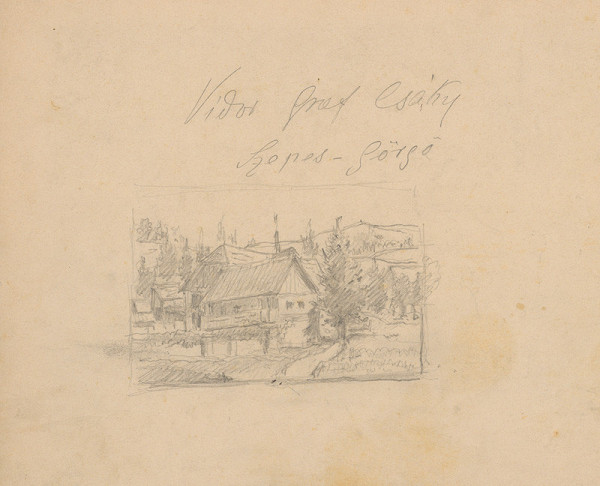 Vidor Graf Csáky
Szepes-Görgő